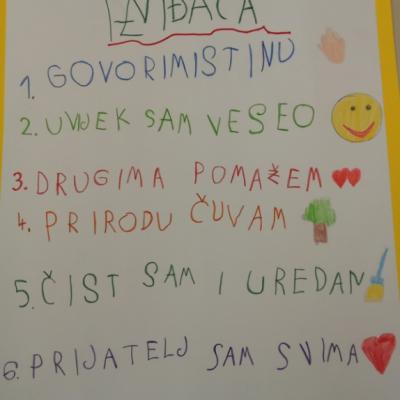 IZVIĐAČA
1. GOVORIM ISTINU
2. UVIJEK SAM VESEO
3. DRUGIMA POMAŽEM
4. PRIRODU ČUVAM
5. ČIST SAM I UREDAN
6. PRIJATELJ SAM SVIMA